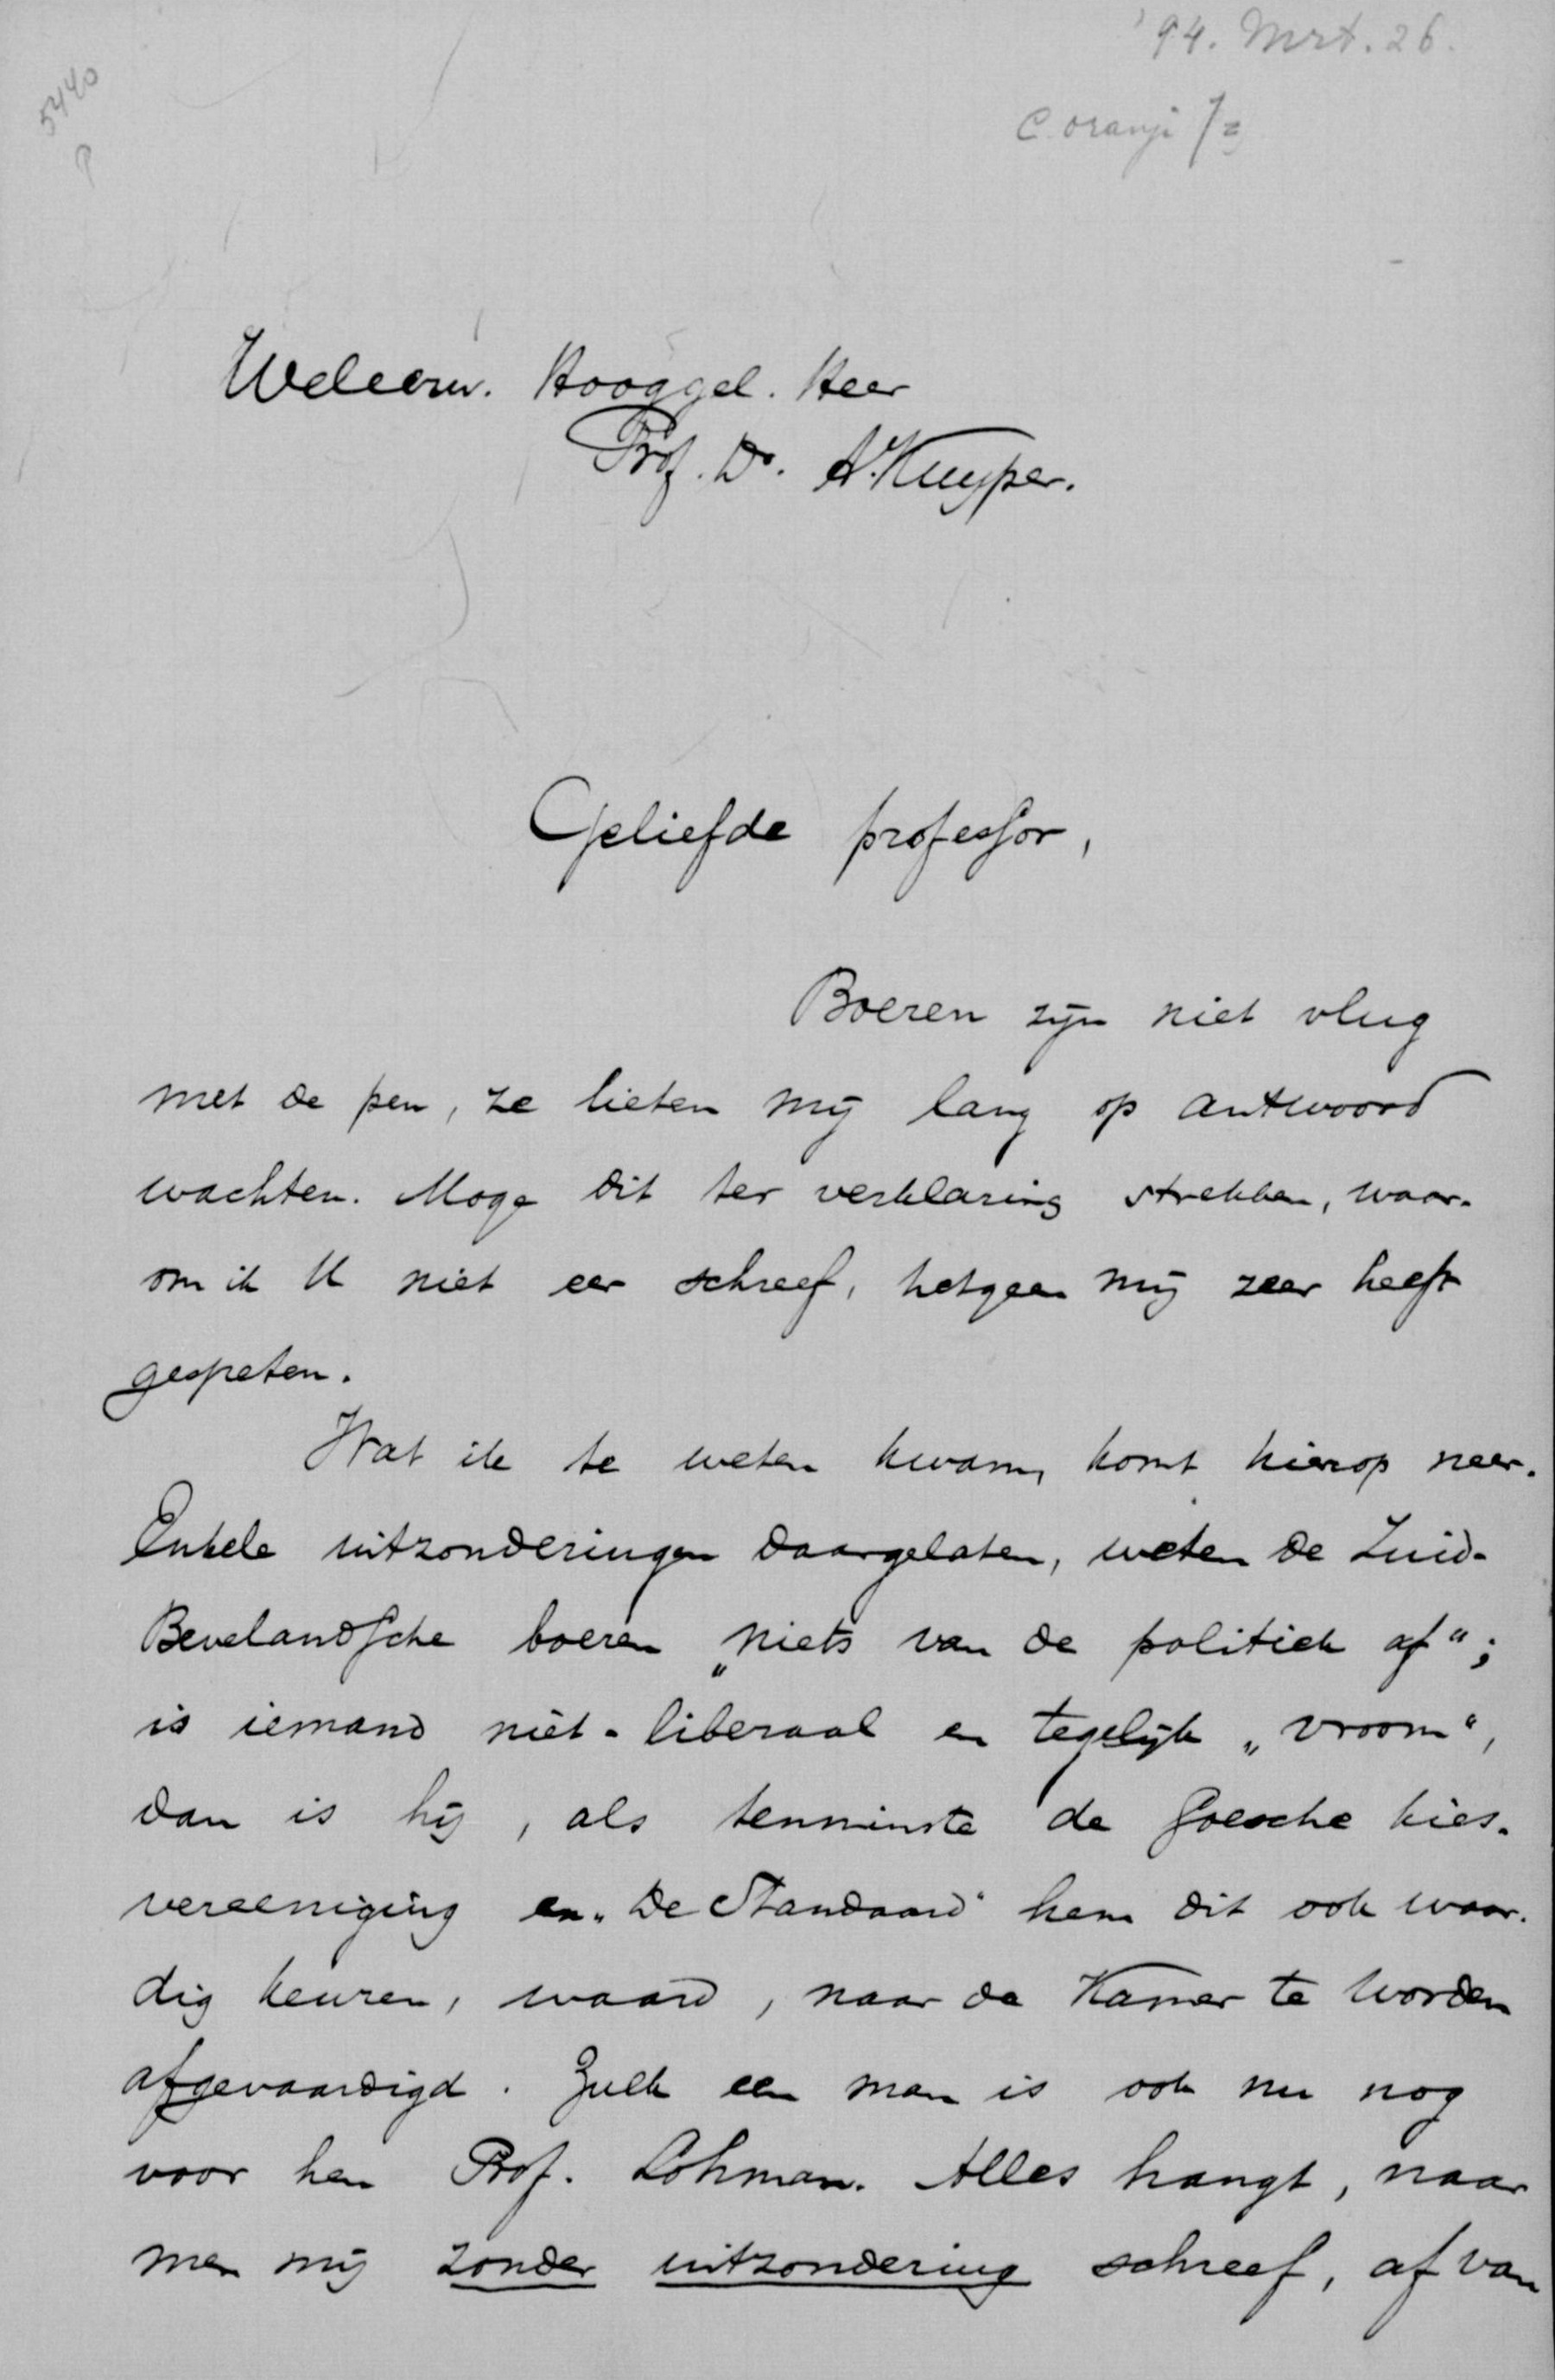 '94. Mrt. 26.
5440
P
C. oranje Jz
Weleerw. Hooggel. Heer
Prof. Dr. A. Kuyper.
Geliefde professor,
Boeren zijn niet vlug
met de pen, ze lieten mij lang op antwoord
wachten. Moge dit ter verklaring strekken, waar-
om ik U niet eer schreef, hetgeen mij zeer heeft
gespeten.
Wat ik te weten kwam, komt hierop neer.
Enkele uitzonderingen daargelaten, weten de Zuid-
Bevelandsche boeren „niets van de politiek af“;
is iemand niet-liberaal en tegelijk „vroom“,
dan is hij, als tenminste de Goesche kies-
vereeniging en „De Standaard“ hem dit ook waar-
dig keuren, waard, naar de Kamer te worden
afgevaardigd. Zulk een man is ook nu nog
voor hen Prof. Lohman. Alles hangt, naar
men mij zonder uitzondering schreef, af van